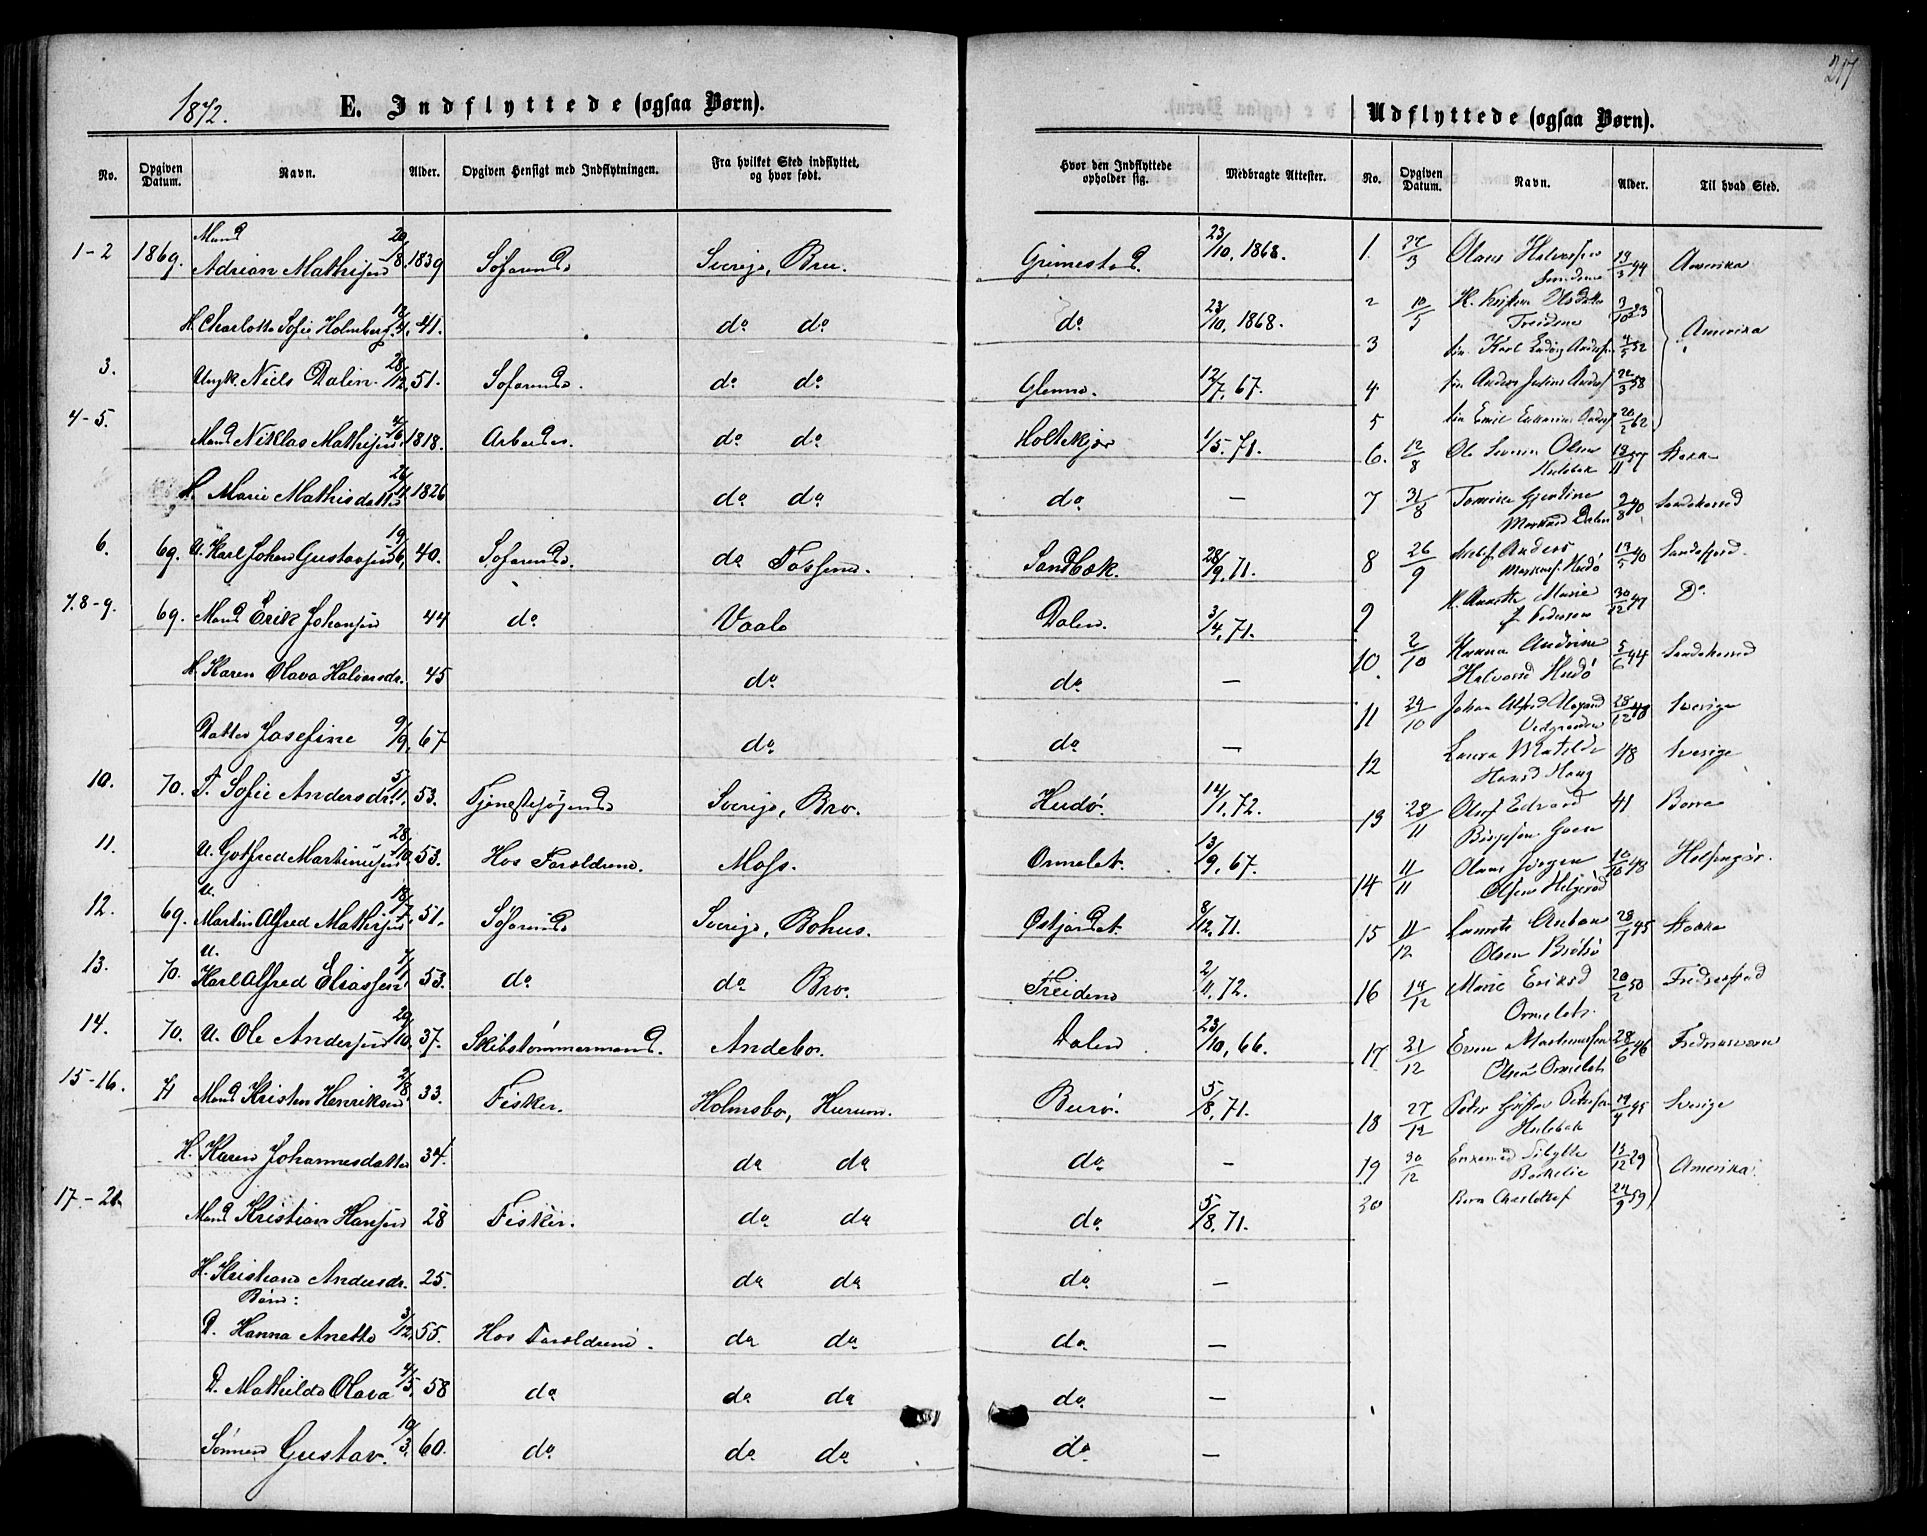 217
1872.
E. Indflyttede (ogsaa Børn).
No. Opgiven Datum. Navn. Alder. Opgiven Hensigt med Indflytningen. Fra hvilket Sted indflyttet, og hvor født.
Hvor den Indflyttede opholder sig. Medbragte Attester.
1-2 1869. Mand Adrian Mathisen 20/8 1839 Søfarende Sverige, Bro. Grimestad. 23/10, 1868.
H. Charlotte Sofie Holmberg 41. do do do 23/10, 1868.
3. Ungk. Niels Dalin. 28/12, 51. Søfarende. do do Glenne. 12/7, 67.
4-5. Mand Niklas Mathisen 1818. Arbeider. do do Holtekjær 1/5. 71.
H. Marie Mathisdatter 26/11 1826 do do do —
6. 69. U. Karl Johan Gustavsen 19/6, 40. Søfarende. do Tossene. Sandbæk. 28/9, 71.
7.8-9. 69. Mand Erik Johansen 44 do Vaale Dalen. 3/4, 71.
H. Karen Olava Halvorsdr. 45 do do —
Datter Josefine 9/9, 67 do do —
10. 70. P. Sofie Andersdr. 53. Tjenestesøgende Sverige, Bro. Hudø. 14/1, 72.
11. U. Gotfred Martinusen 28/10, 53. Hos Forældrene Moss. Ormelet. 13/9, 67.
12. 69. U. Martin Alfred Mathisen 51. Søfarende Sverige, Bohus. Østjordet. 8/12, 71.
13. 70. U. Karl Alfred Eliassen 7/1 53. do do Bro. Treidene 2/11, 72.
14. 70. U. Ole Andersen 29/10, 37. Skibstømmermand. Andebo. Dalen 23/10, 66.
15-16. 71 Mand Kristen Henriksen 2/8 33. Fisker. Holmsbo, Hurum. Burø. 5/8, 71.
H. Karen Johannesdatter 34. do do do —
17-21. Mand Kristian Hansen 28 Fisker. do do do 5/8, 71.
H. Kristiane Andersdr. 25. do do do —
Børn:
D. Hanna Anette 3/12, 55. Hos Forældrene. do do do —
D. Mathilde Olava 4/5, 58 do do do do —
Sønnen Gustav. 10/3, 60. do do do do —
Udflyttede (ogsaa Børn).
No. Opgiven Datum. Navn. Alder. Til hvad Sted.
1. 27/3 Olaus Halvorsen 13/3 44 Amerika
2 10/5 H. Kristine Olsdatter Treidene 3/10 23 Amerika
3 Karl Andersen 4/5 52
4 Anders Julius Anders. 22/3 58
5 Emil 20/2 62
6. 12/8 Ole Olsen 57 Stokke
7 31/8 Tomine Gjertine Dalen 2/8 40 Sandeherred
8 26/9 Anders Hudø 13/5 40 Sandefjord.
9 H. Anette Marie f. Pedersen 30/12 47 Do
10. 2/10 Hanna Andrine Halvorsd Hudø 5/6 44 Sandeherred
11 29/10 Johan Alfred 28/12 48 Sverige
12 Laura Matilde Hansd Haug 48 Sverige
13 28/11 Oluf Edvard 41 Borre
14 11/11 Olaus Jørgen Olsen Helgerød 10/10 48 Helsingør.
15 11/12 Anton Olsen 28/7 45 Stokke
16 19/12 Marie Eriksd Ormelet. 20/2 50 Fredrikstad
17 21/12 Even Olsen Ormelet 28/6 46 Fredriksværn
18 27/12 Peter 45 Sverige
19 30/12 Enkemad Sibylle 13/12 29 Amerika.
20 Barn 24/9 59